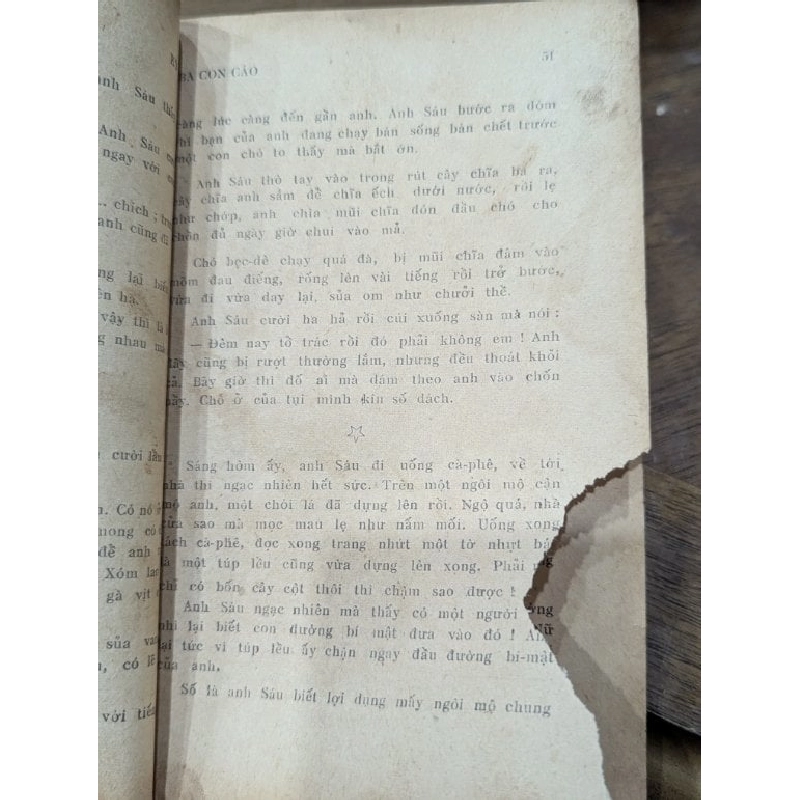 anh Sáu
Anh Sáu
ngay với
chích ;
anh cũng đã
lại
vậy thì là
nhau mà
cười lần
Có nó
mong có
để anh
Xóm
gà vịt
sủa
có lẽ
với tiến
BA CON CÁO 51
lúc càng đến gần anh. Anh Sáu bước ra dòm
bạn của anh đang chạy bán sống bán chết trước
một con chó to thấy mà bắt ớn.
Anh Sáu thò tay vào trong rút cây chĩa ba ra,
cây chĩa anh sắm để chĩa ếch dưới nước, rồi lẹ
như chớp, anh chĩa mũi chĩa đón đầu chó cho
chồn đủ ngày giờ chui vào mả.
Chó bẹc-dê chạy quá đà, bị mũi chĩa đâm vào
mõm đau điếng, rống lên vài tiếng rồi trở bước,
vừa đi vừa day lại, sủa om như chưởi thề.
Anh Sáu cười ha hả rồi cúi xuống sàn mà nói :
— Đêm nay tổ trác rồi đó phải không em ! Anh
đây cũng bị rượt thường lắm, nhưng đều thoát khỏi
cả. Bây giờ thì đố ai mà dám theo anh vào chốn
nầy. Chỗ ở của tụi mình kín số dách.
Sáng hôm ấy, anh Sáu đi uống cà-phê, về tới
nhà thì ngạc nhiên hết sức. Trên một ngôi mộ cận
mộ anh, một chòi lá đã dựng lên rồi. Ngộ quá, nhà
cửa sao mà mọc mau lẹ như nấm mối. Uống xong
tách cà-phê, đọc xong trang nhứt một tờ nhựt
là một túp lều cũng vừa dựng lên xong. Phải
chỉ có bốn cây cột thôi thì chậm sao được !
Anh Sáu ngạc nhiên mà thấy có một người
nhì lại biết con đường bí mật đưa vào đó !
tại tức vì túp lều ấy chận ngay đầu đường bí-mật
của anh.
Số là anh Sáu biết lợi dụng mấy ngôi mộ chung